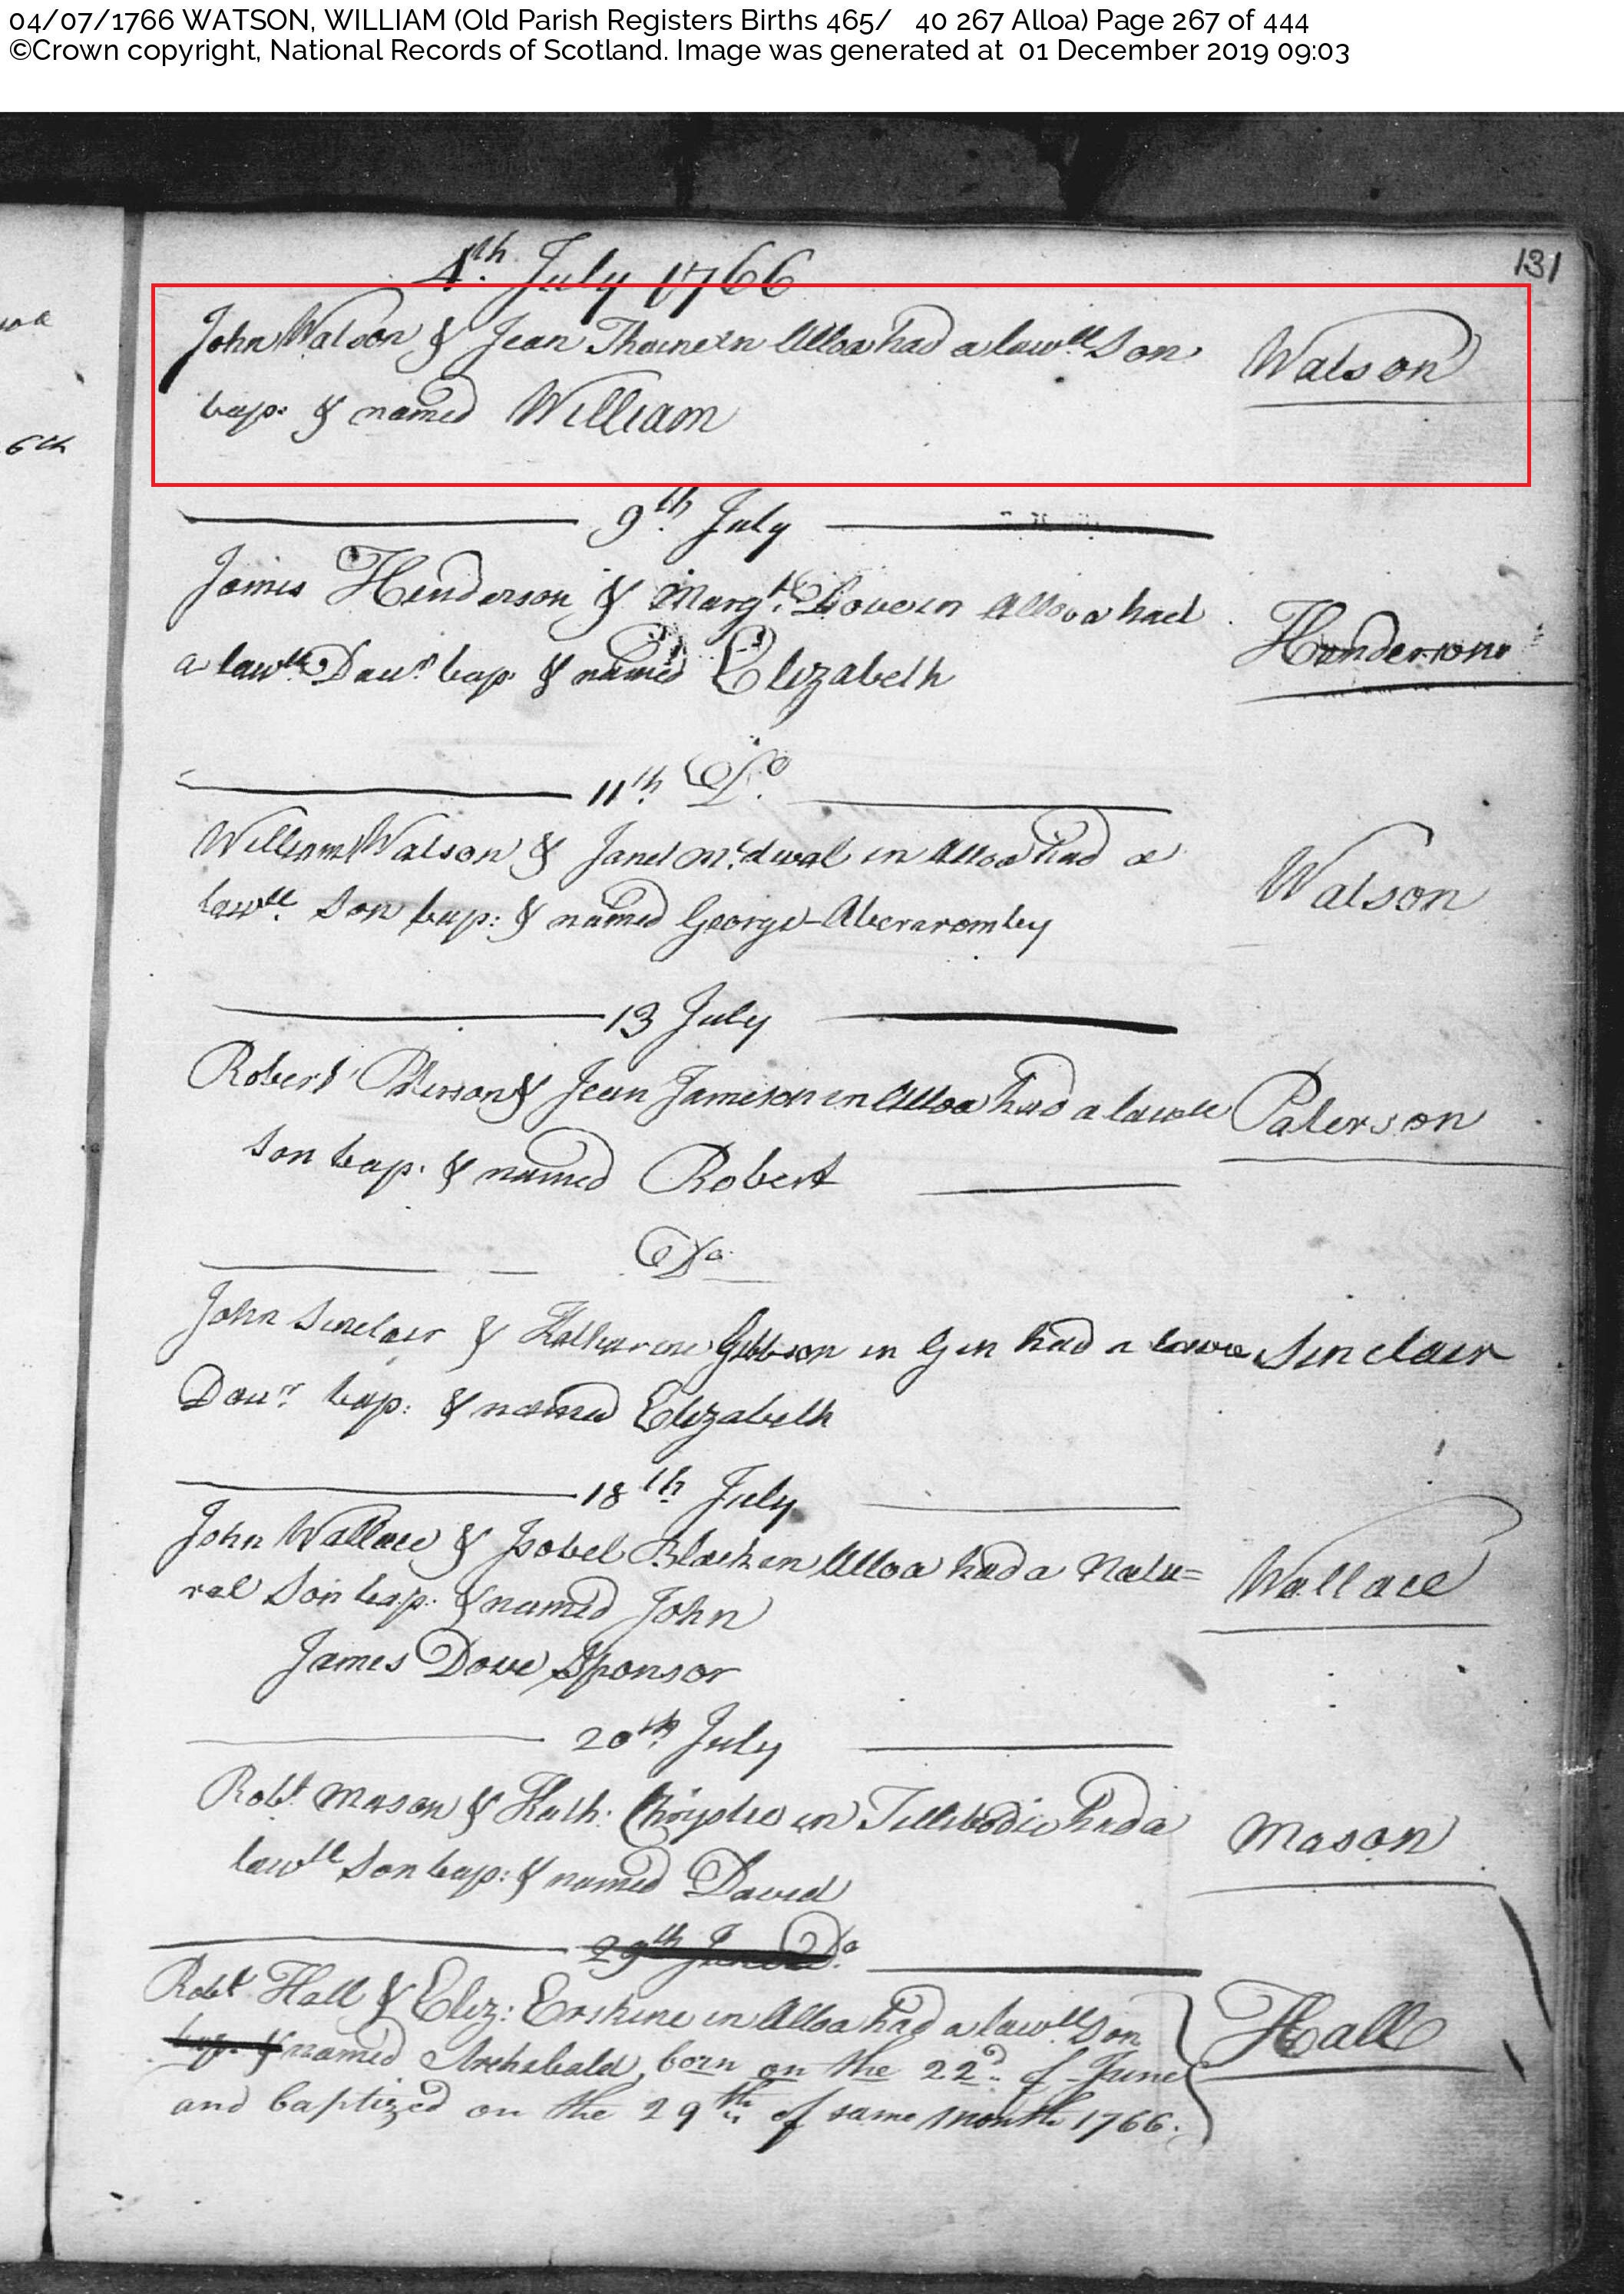 04/07/1766 WATSON, WILLIAM (Old Parish Registers Births 465/ 40 267 Alloa) Page 267 of 444
©Crown copyright, National Records of Scotland. Image was generated at 01 December 2019 09:03
131
4th July 1766
John Watson & Jean Thaine in Alloa had a lawll Son Watson
bap: & named William
6th
9th July
James Henderson & Margt Dove in Alloa had Henderson
a lawll Daur bap & named Elizabeth
11th Do
William Watson & Janet in Alloa had a
lawll Son bap: & named George Abercromby Watson
13 July
Robert Paterson & Jean Jameson in Alloa had a lawll Paterson
Son bap. & named Robert
Do
John Sinclair & Katharine Gibbson in had a Sinclair
Daur bap: & named Elizabeth
18th July
John Wallace & Isobel Black in Alloa had a Natu= Wallace
ral Son bap. & named John
James Dove Sponsor
20th July
Robt Mason & Kath: Chrystie in Tillibodie had a Mason
lawll Son bap: & named David
29th June Do
Robt Hall & Eliz: Erskine in Alloa had a lawll Son Hall
bap. & named Archabald, born on the 22d of June
and baptized on the 29th of same month 1766.